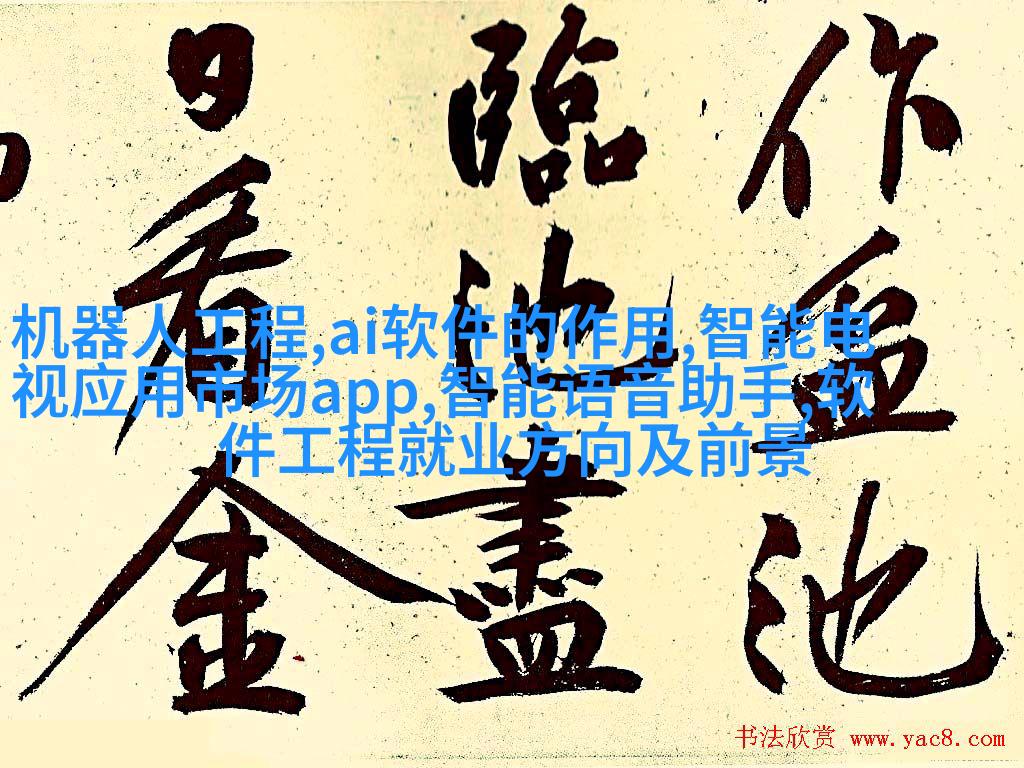 作盆池
臨池盡
日看金
机器人工程,ai软件的作用,智能电
视应用市场app,智能语音助手,软
件工程就业方向及前景
书法欣赏 www.yac8.com